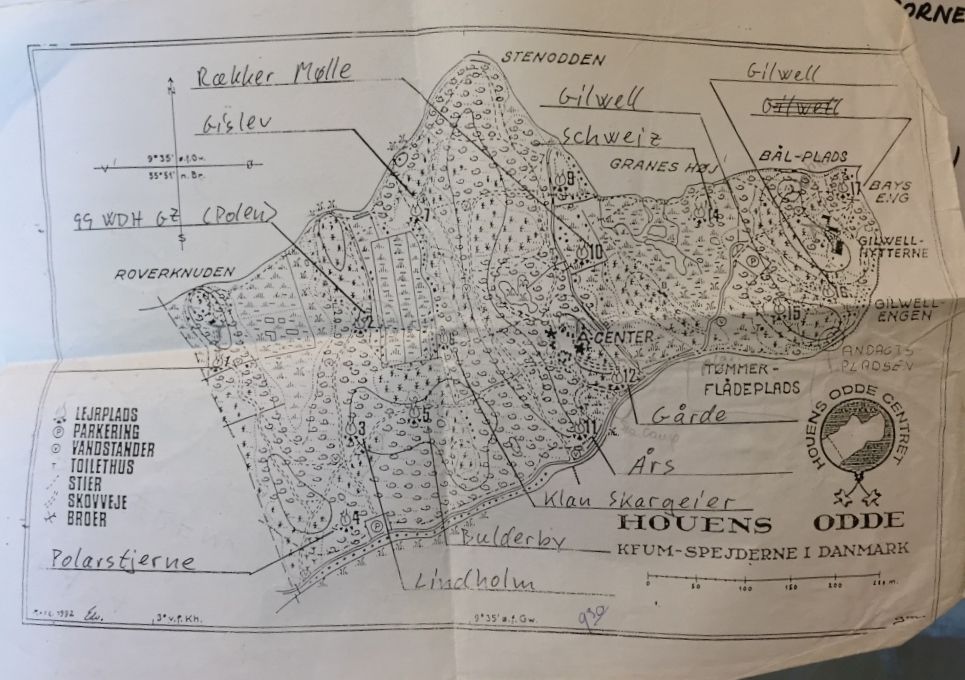 ORNE
STENODDEN
Rækker Mølle
Gilwell
Gilwell
Gilwell
Gislev
Schweiz
GRANES HØJ
BÅL-PLADS
9
17
BAYS
ENG
9°35' ø.f.Gw.
V
Ø
55°51' n.Br.
14
7
99 WDH GZ (Polen)
S
10
GILWELL-
HYTTERNE
P
ROVERKNUDEN
GILWELL
ENGEN
15
2
CENTER
1
6
ANDAGTS
PLADSEN
TØMMER-
FLÅDEPLADS
12
HOUENS ODDE CENTRET
LEJRPLADS
P PARKERING
VANDSTANDER
TOILETHUS
STIER
SKOVVEJE
BROER
5
3
11
Gårde
Års
Klan Skargeier
HOUENS ODDE
4
P
Bulderby
KFUM-SPEJDERNE I DANMARK
Polarstjerne
Lindholm
0 50 100 150 200 250 m.
1992
3° v.f. Kh.
9°35' ø.f. Gw.
930
gm.